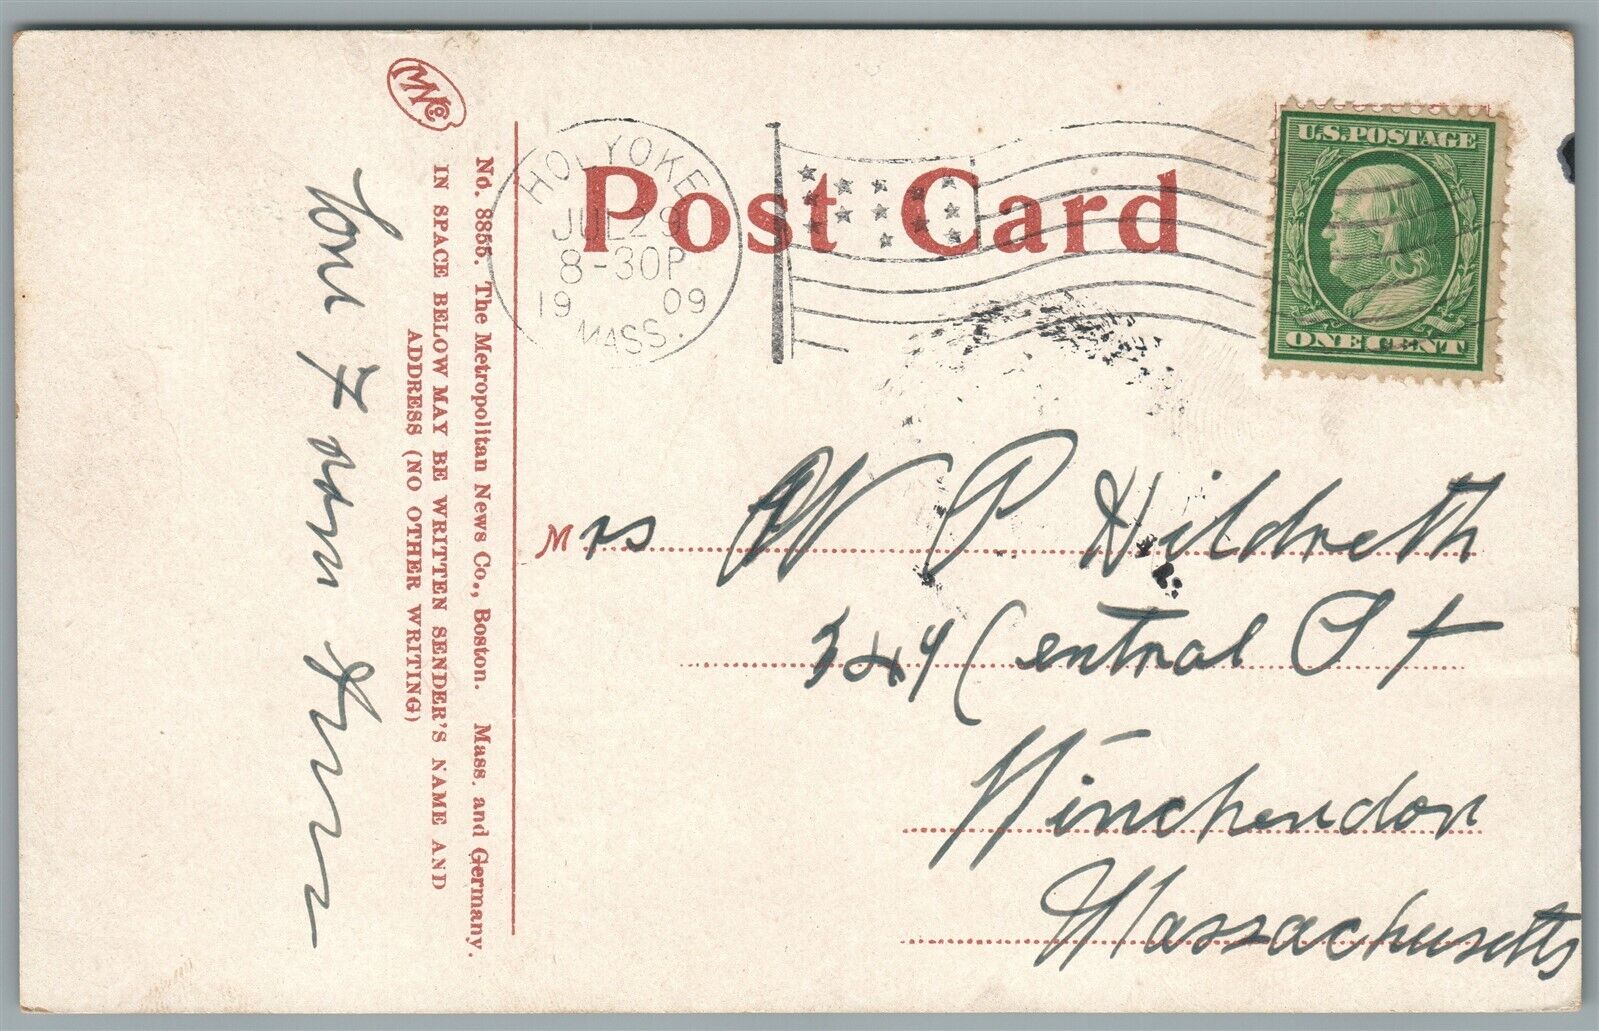 MNCo
No. 8855. The Metropolitan News Co., Boston. Mass. and Germany.
IN SPACE BELOW MAY BE WRITTEN SENDER'S NAME AND
ADDRESS (NO OTHER WRITING)
Post Card
HOLYOKE
JUL 29
8-30P
19 09
MASS.
U.S. POSTAGE
ONE CENT
Mrs W P. Hildreth
Central St
Winchendon
Massachusetts